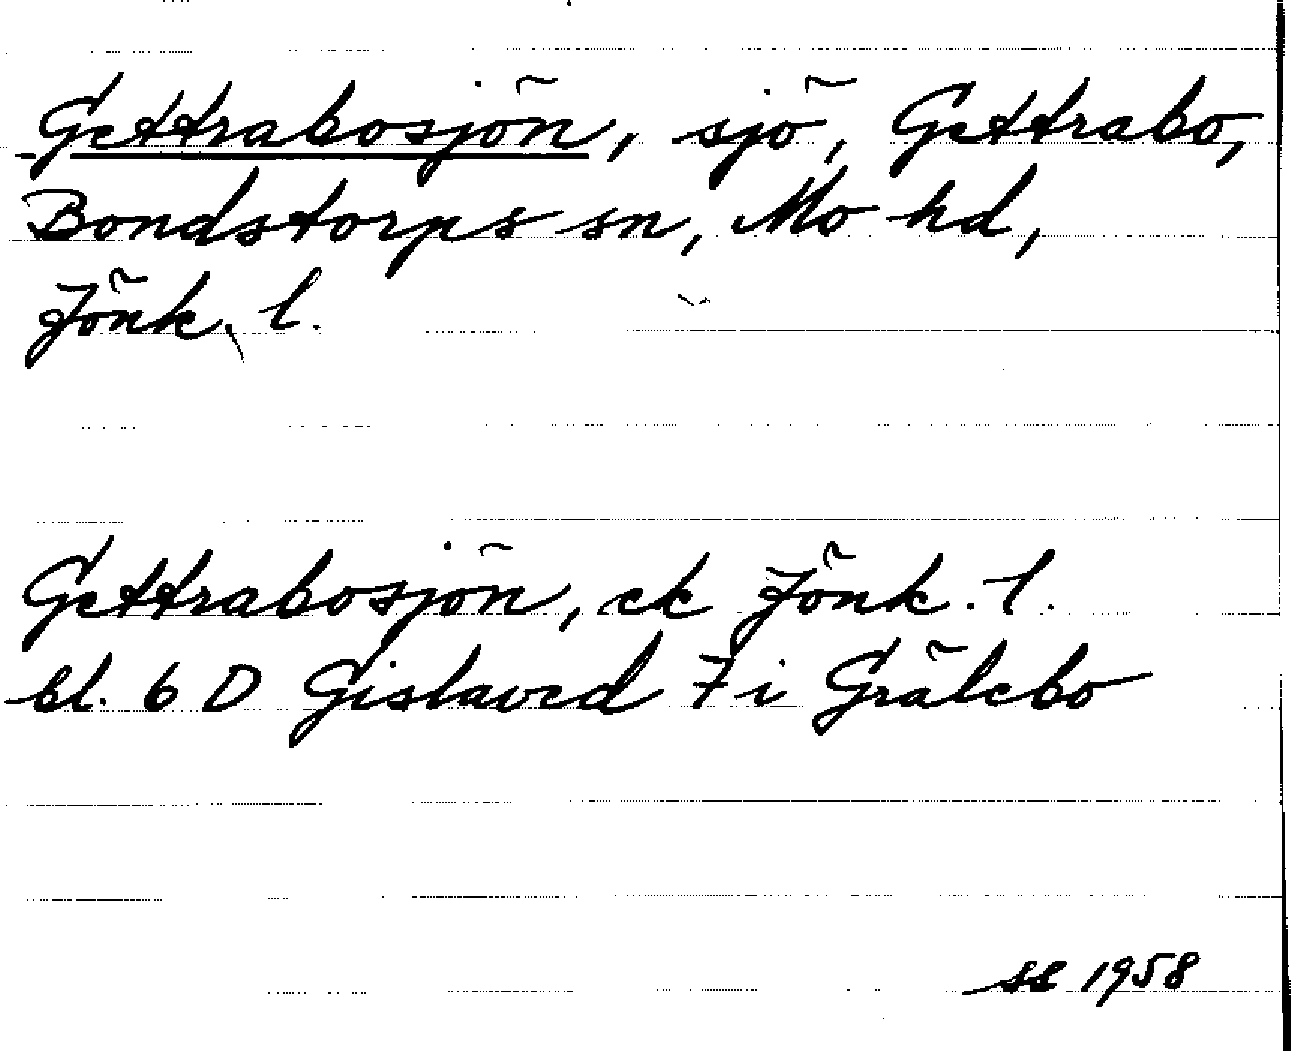 Gettrabosjön, sjö, Gettrabo,
Bondstorps sn, Mo hd,
Jönk. l.
Gettrabosjön, ek Jönk. l.
bl. 6 D Gislaved 7 i Grälebo
SE 1958